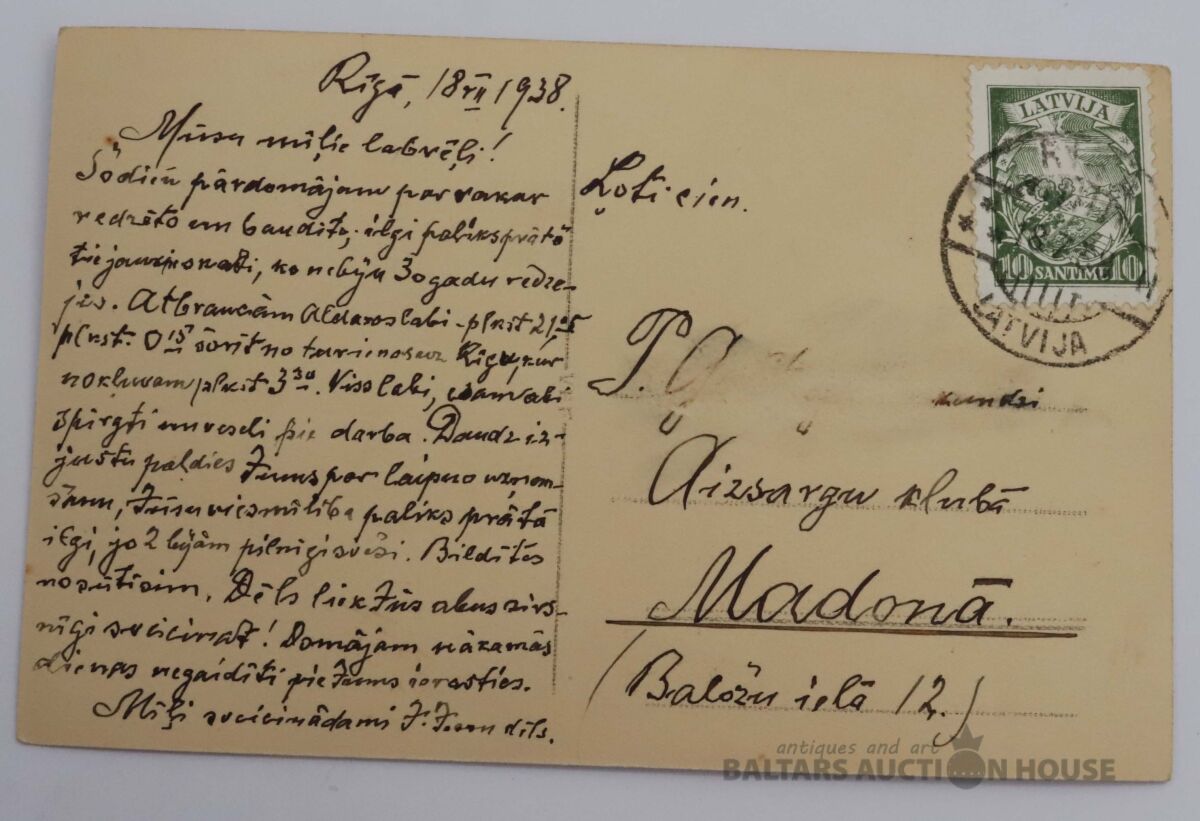 Rīgā, 18 VII 1938.
Mūsu mīļie labvēļi!
Šodien pārdomājam par vakar
redzēto un baudīto, ilgi paliks prātā
tie jaukie skati, ko nebiju 30 gadu redzē-
jis. Atbraucām Aldaros labi - plkst 21,
plkst. 0 15 šorīt no turienes uz Rīgu, kur
nokļuvām plkst 3 30. Viss labi, esam abi
spirgti un veseli pie darba. Daudz iz-
justu paldies Jums par laipno uzņem-
šanu, Jūsu viesmīlība paliks prātā
ilgi, jo bijām pilnīgi sveši. Bildītes
nosūtīsim. Dēls liek Jūs abus sirs-
nīgi sveicināt! Domājam nākamās
dienas negaidīti pie Jums ierasties.
Mīļi sveicinādami J.
Ļoti cien.
kundzei
Aizsargu klubā
Madonā.
(Baložu ielā 12.)
LATVIJA
10 SANTIMU 10
LATVIJA
antiques and art
BALTARS AUCTION HOUSE